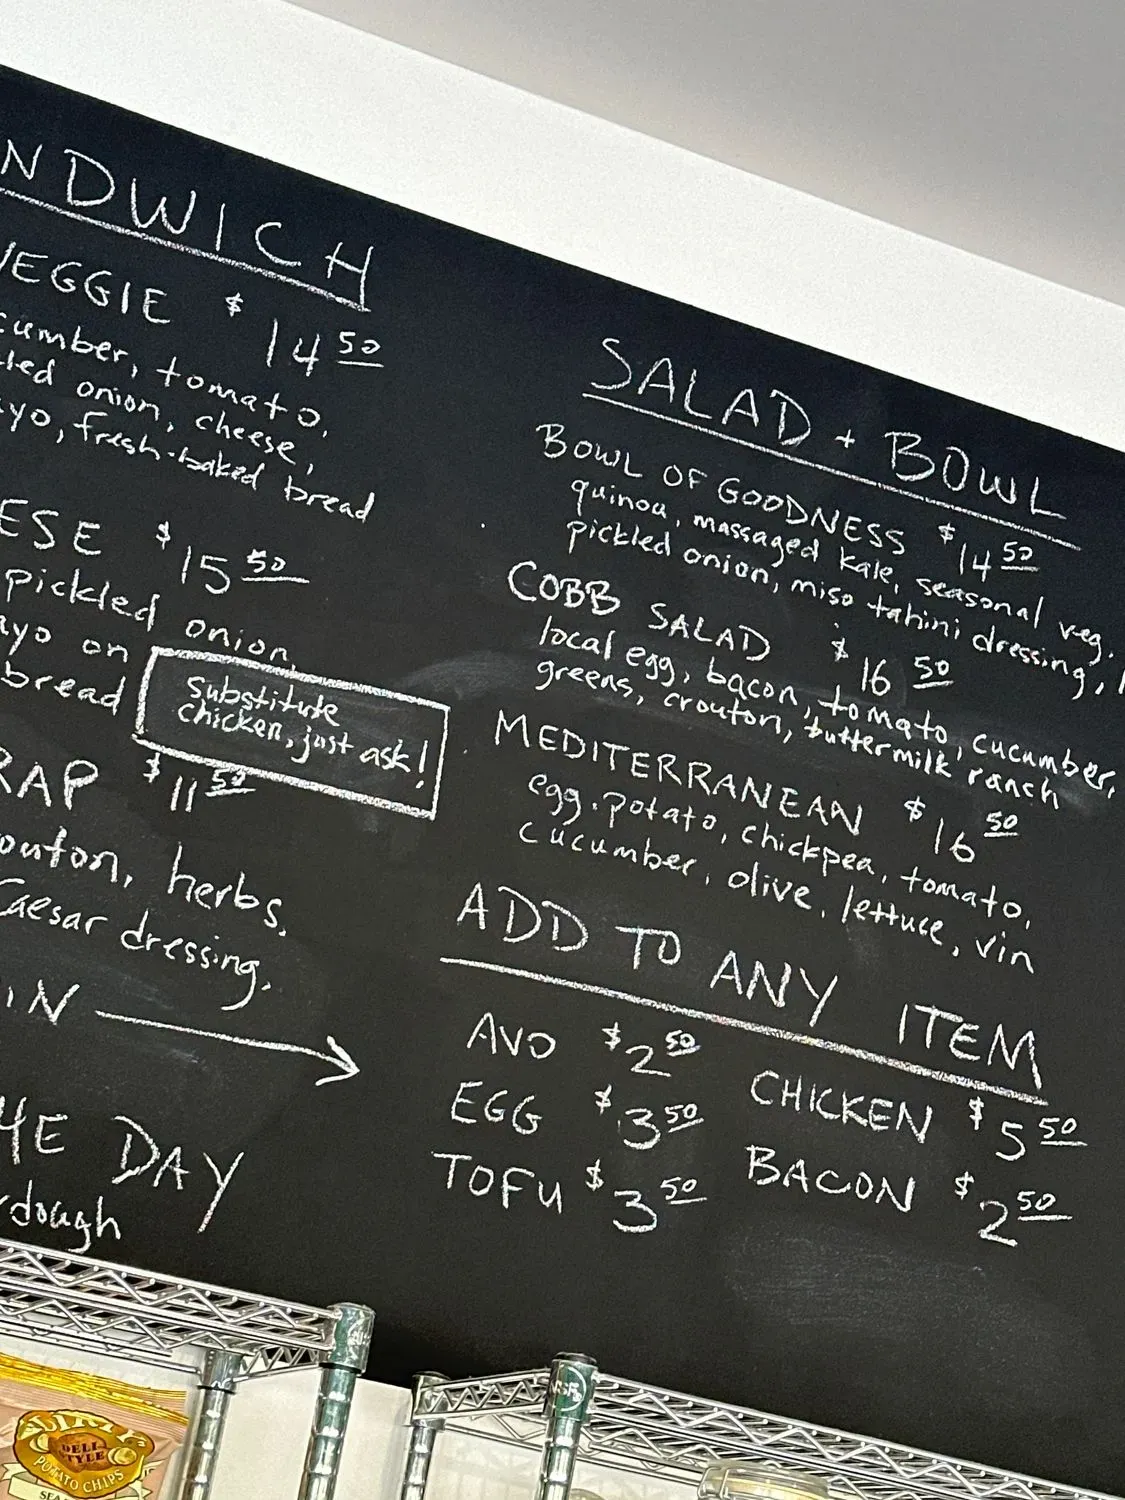 NDWICH
VEGGIE $14 50
cumber, tomato,
led onion, cheese,
yo, fresh-baked bread
ESE $15 50
pickled onion
ayo on
bread
Substitute
chicken, just ask!
RAP $11 50
outon, herbs,
Caesar dressing.
IN
HE DAY
dough
SALAD + BOWL
BOWL OF GOODNESS $14 50
quinoa, massaged kale, seasonal veg.
pickled onion, miso tahini dressing,
COBB SALAD $16 50
local egg, bacon, tomato, cucumber,
greens, crouton, buttermilk ranch
MEDITERRANEAN $16 50
egg, potato, chickpea, tomato,
cucumber, olive, lettuce, vin
ADD TO ANY ITEM
AVO $2 50
EGG $3 50
TOFU $3 50
CHICKEN $5 50
BACON $2 50
DELI
STYLE
POTATO CHIPS
SEA